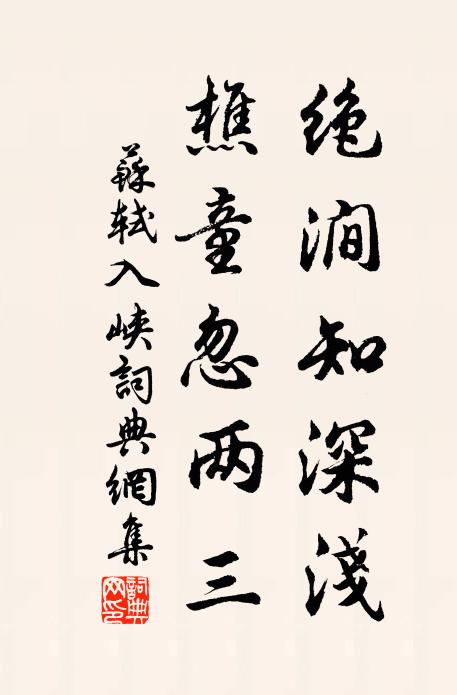 绝涧知深浅
樵童忽两三
苏轼入峡词典網集
詞典網印